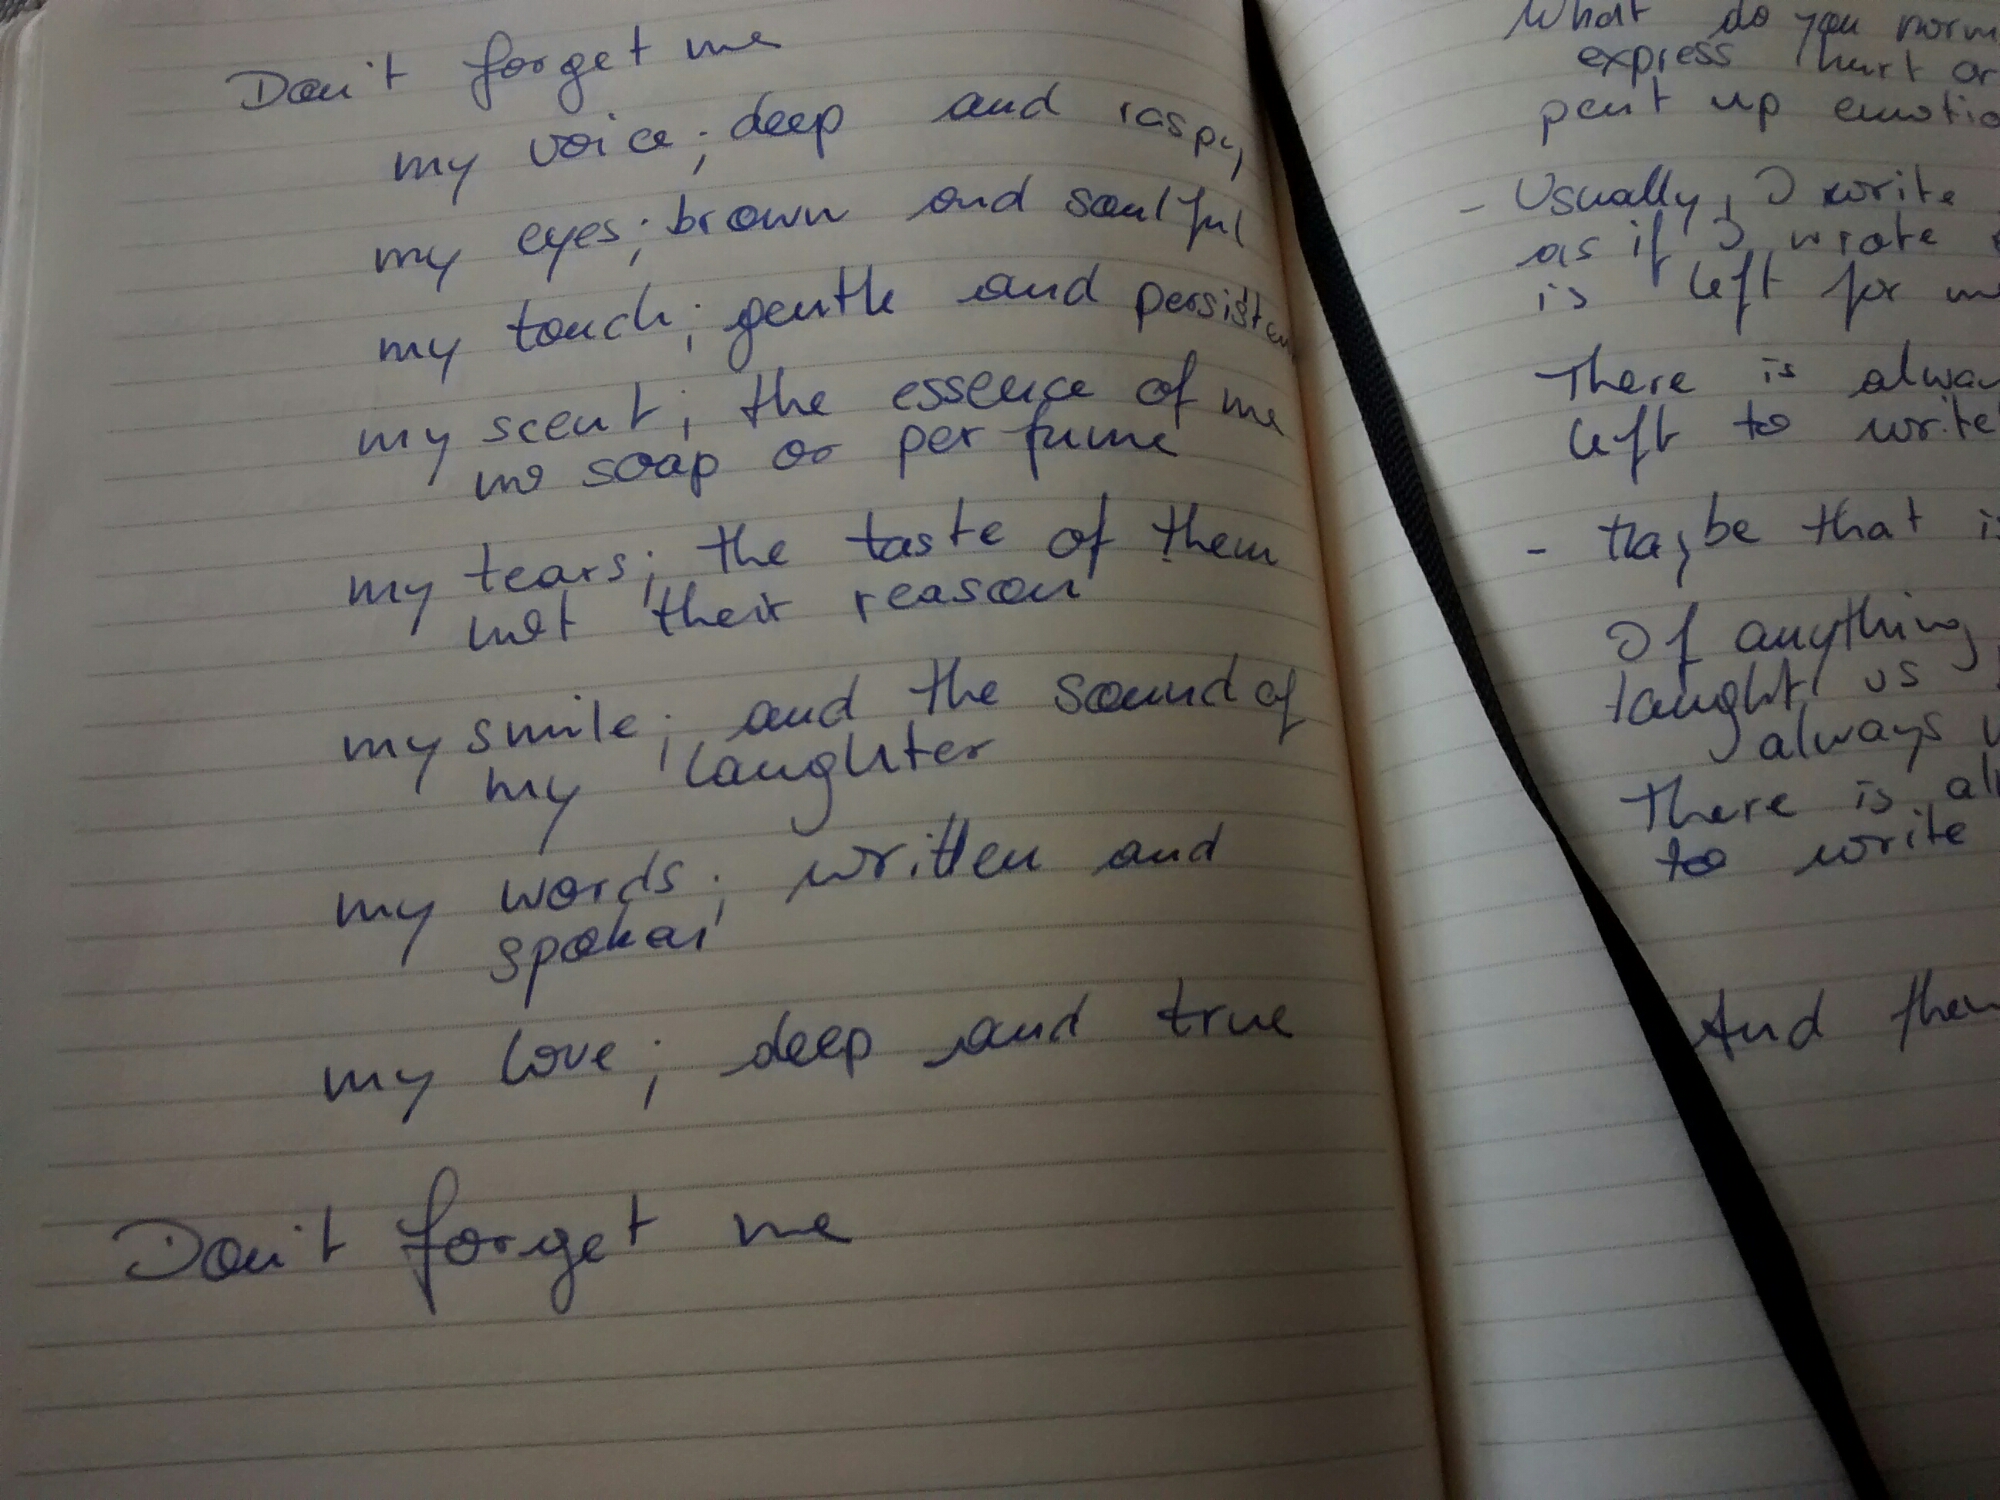 Don't forget me
my voice; deep and raspy
my eyes; brown and soulful
my touch; gentle and persisten
my scent; the essence of me
no soap or perfume
my tears; the taste of them
not their reason
my smile; and the sound of
my laughter
my words; written and
spoken
my love; deep and true
Don't forget me
What do you norm
express hurt or
pent up emotio
- Usually, I write
as if I wrote
is left for
There is alwa
left to write
- Maybe that is
Of anything
taught us
always
There is al
to write
And then